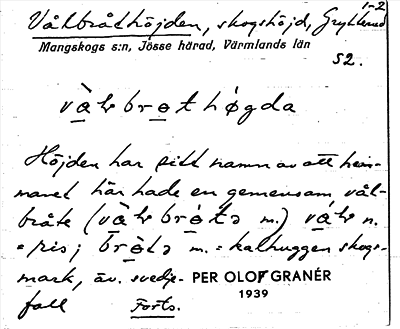 Vålbråthöjden, skogshöjd, Gryttved 1-2
Mangskogs s:n, Jösse härad, Värmlands län
52.
và̱ɫbro̱thø̀gda
Höjden har fått namn av att hem-
manet här hade en gemensam vål-
bråte (và̱ɫbro̱tə m.) vá̱ɫ n.
= ris; brò̱tə m. = kalhuggen skogs-
mark, äv. svedje-
fall Forts.
PER OLOF GRANÉR
1939